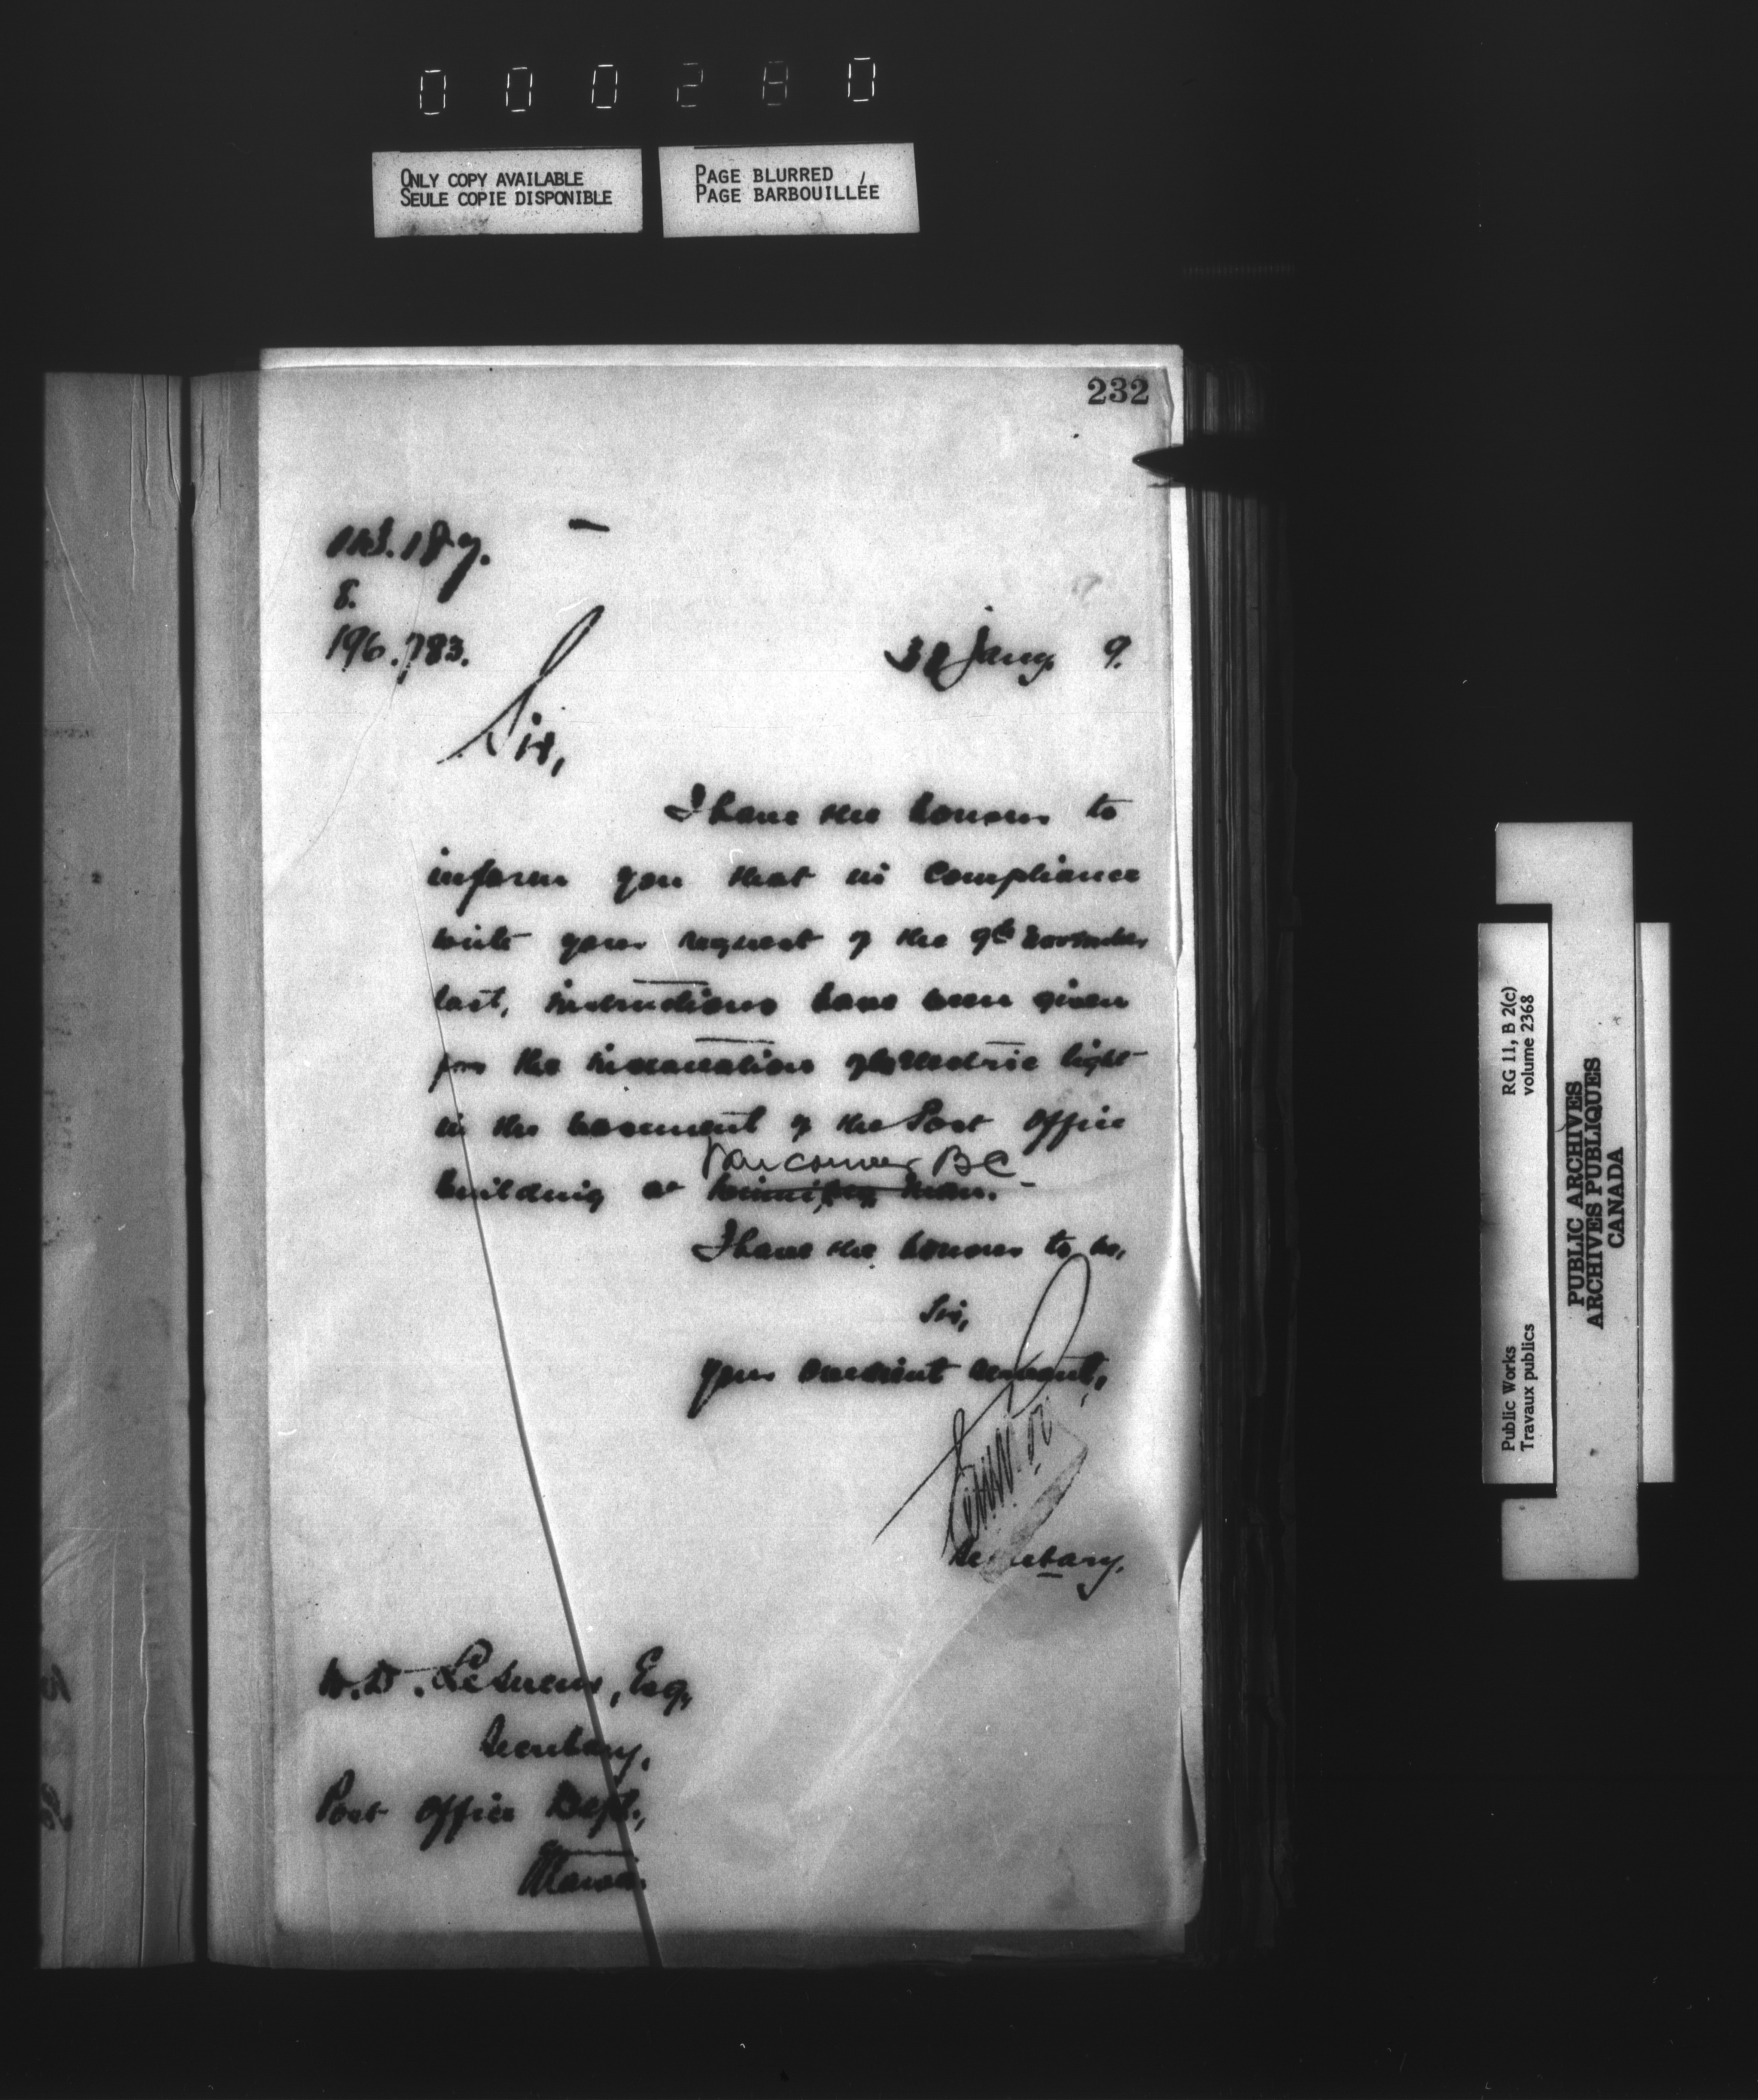 000280
ONLY COPY AVAILABLE
SEULE COPIE DISPONIBLE
PAGE BLURRED
PAGE BARBOUILLÉE
232
187.
8.
196.783.
Jany. 9.
Sir,
I have the honour to
inform you that in compliance
with your request of the 9th November
last, instructions have been given
for the installation of electric light
in the basement of the Post Office
Vancouver BC
building at Winnipeg Man.
I have the honour to be,
Sir,
Your obedient servant,
Secretary.
W.D. LeSueur, Esq,
Secretary,
Post Office Dept.,
Ottawa.
Public Works
Travaux publics
RG 11, B 2(c)
volume 2368
PUBLIC ARCHIVES
ARCHIVES PUBLIQUES
CANADA